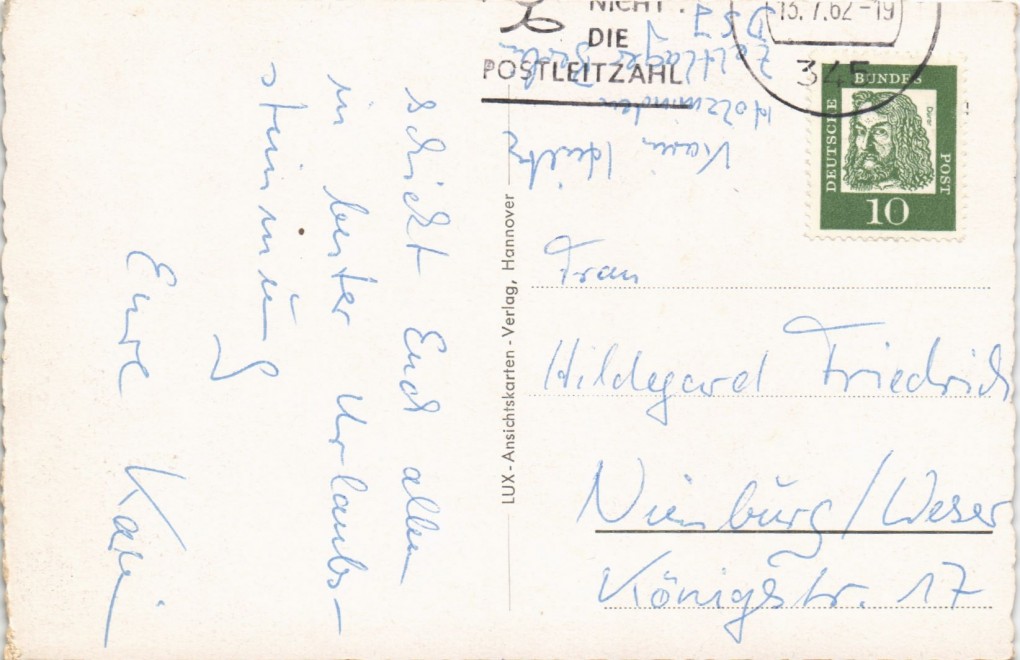 schickt Euch allen
in bester Urlaubs-
stimmung
Eure Karin
LUX-Ansichtskarten-Verlag, Hannover
NICHT
DIE
POSTLEITZAHL
13.7.62-19
345
DEUTSCHE
BUNDES
POST
Dürer
10
Karin
Holzminden
Zeltlager
DSJ
Frau
Hildegard Friedrich
Nienburg/Weser
Königstr. 17